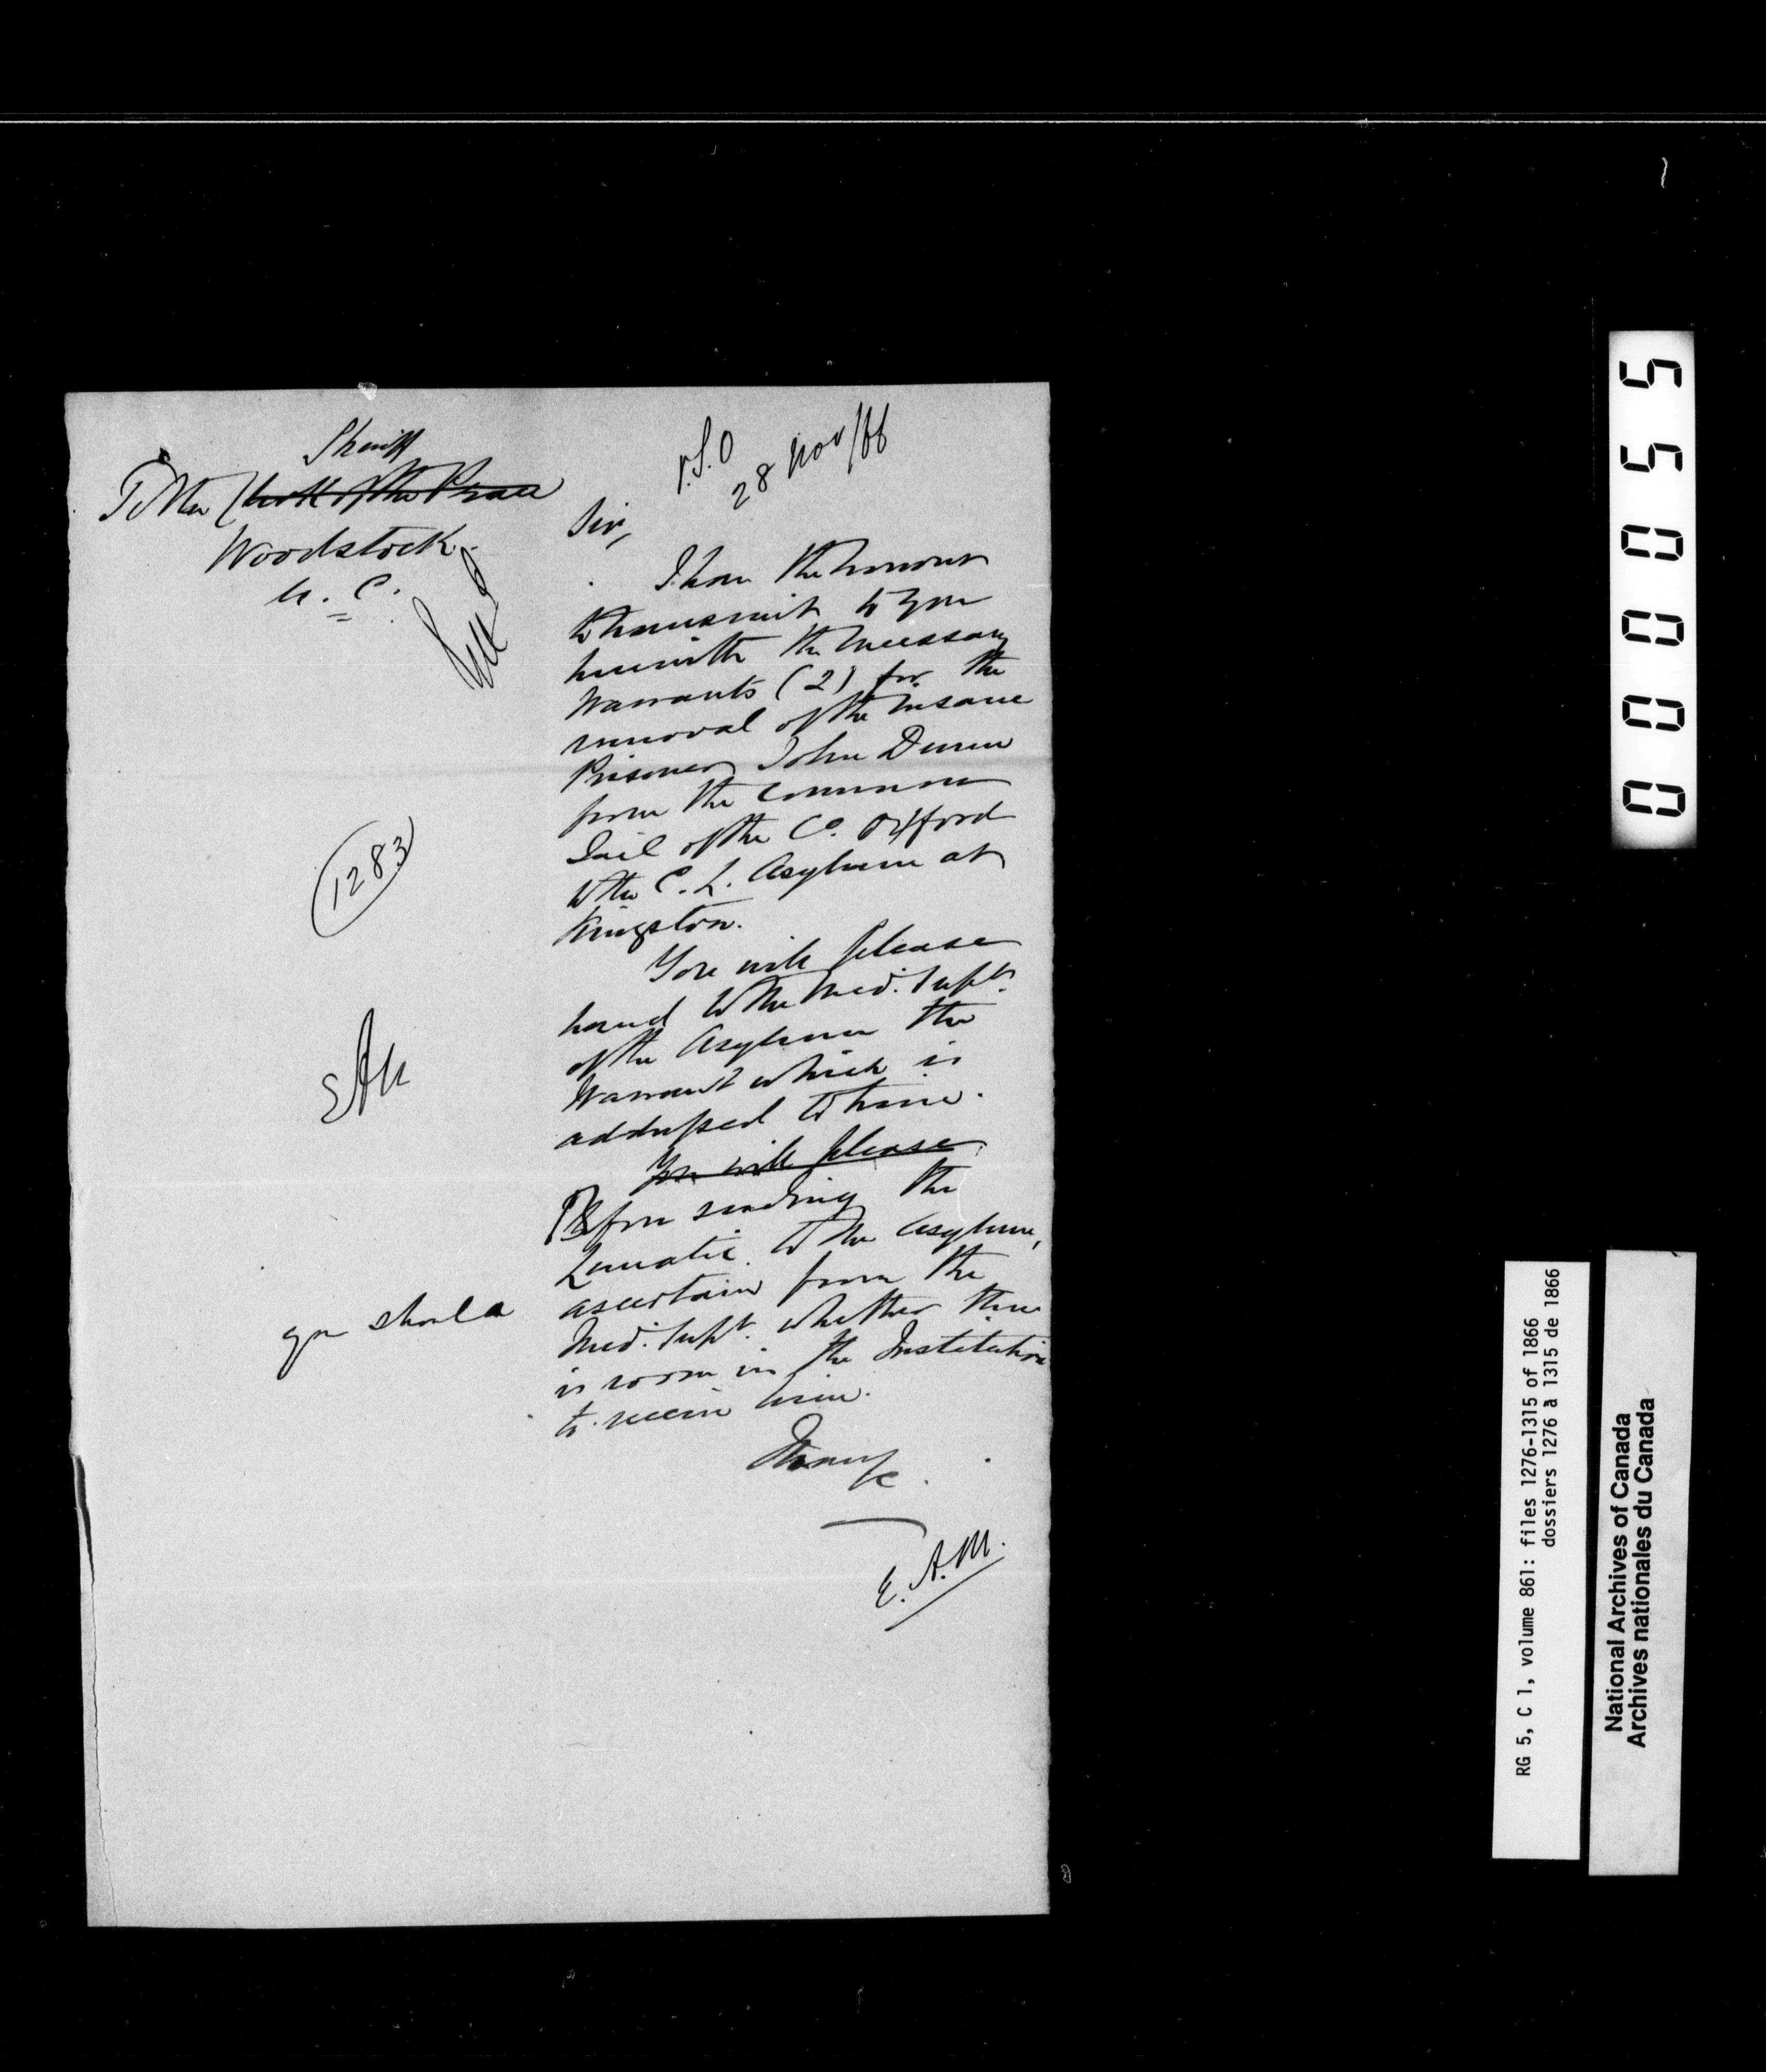 Sheriff
To the Clerk of the Peace
Woodstock.
U. C.
P.S.O
28 Nov/66
Sir,
I have the honour
to transmit to you
herewith the necessary
Warrants (2) for the
removal of the insane
Prisoner John Dunn
from the common
Gaol of the Co. Oxford
to the C. L. Asylum at
Kingston.
1283
You will please
hand to the Med. Supt.
of the Asylum the
Warrant which is
addressed to him.
You will please
Before sending the
Lunatic to the Asylum,
you should
ascertain from the
Med. Supt. whether there
is room in the Institution
to receive him.
E. A. M.
00055
RG 5, C 1, volume 861: files 1276-1315 of 1866
dossiers 1276 à 1315 de 1866
National Archives of Canada
Archives nationales du Canada